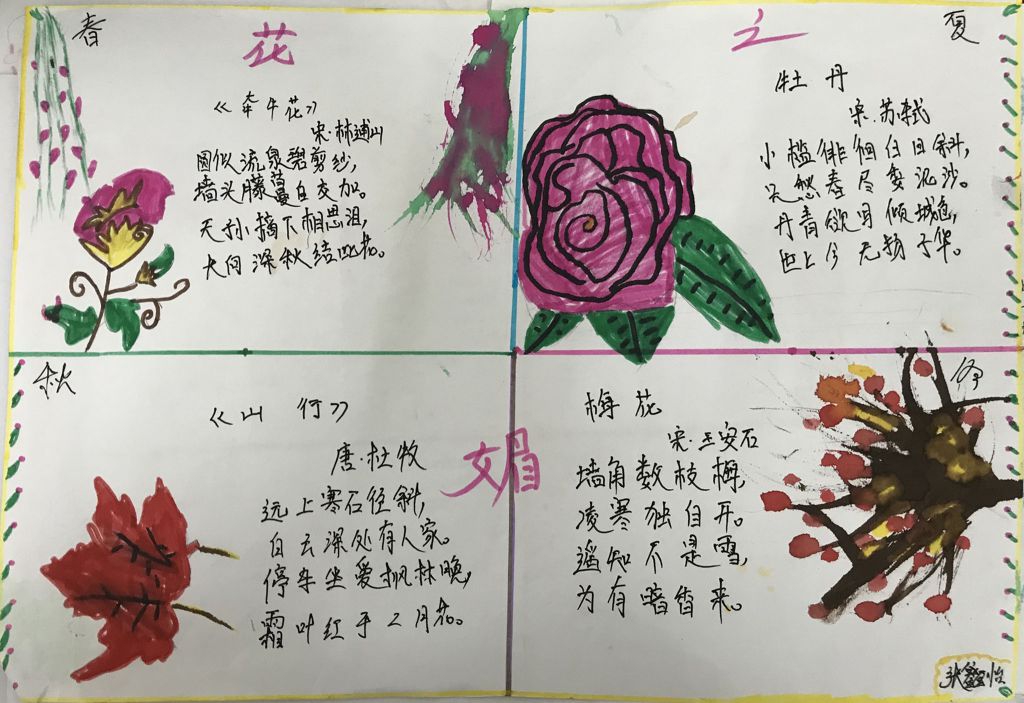 春
花
之
夏
《牵牛花》
宋·林逋山
圆似流泉碧剪纱,
墙头藤蔓自交加。
天孙摘下相思泪,
长向深秋结此花。
牡丹
宋·苏轼
小槛徘徊白日斜,
只愁春尽委泥沙。
丹青欲写倾城色,
世上今无杨子华。
秋
《山行》
唐·杜牧
远上寒石径斜,
白云深处有人家。
停车坐爱枫林晚,
霜叶红于二月花。
媚
冬
梅花
宋·王安石
墙角数枝梅,
凌寒独自开。
遥知不是雪,
为有暗香来。
张鑫怡